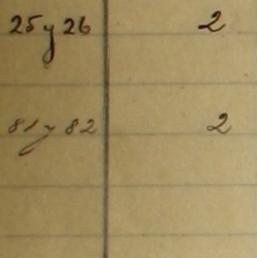 25 y 26 2
81 y 82 2